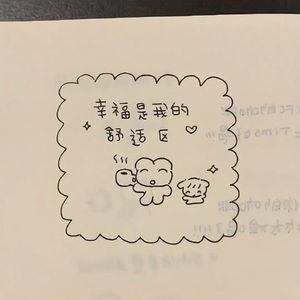 幸福是我的
舒适区